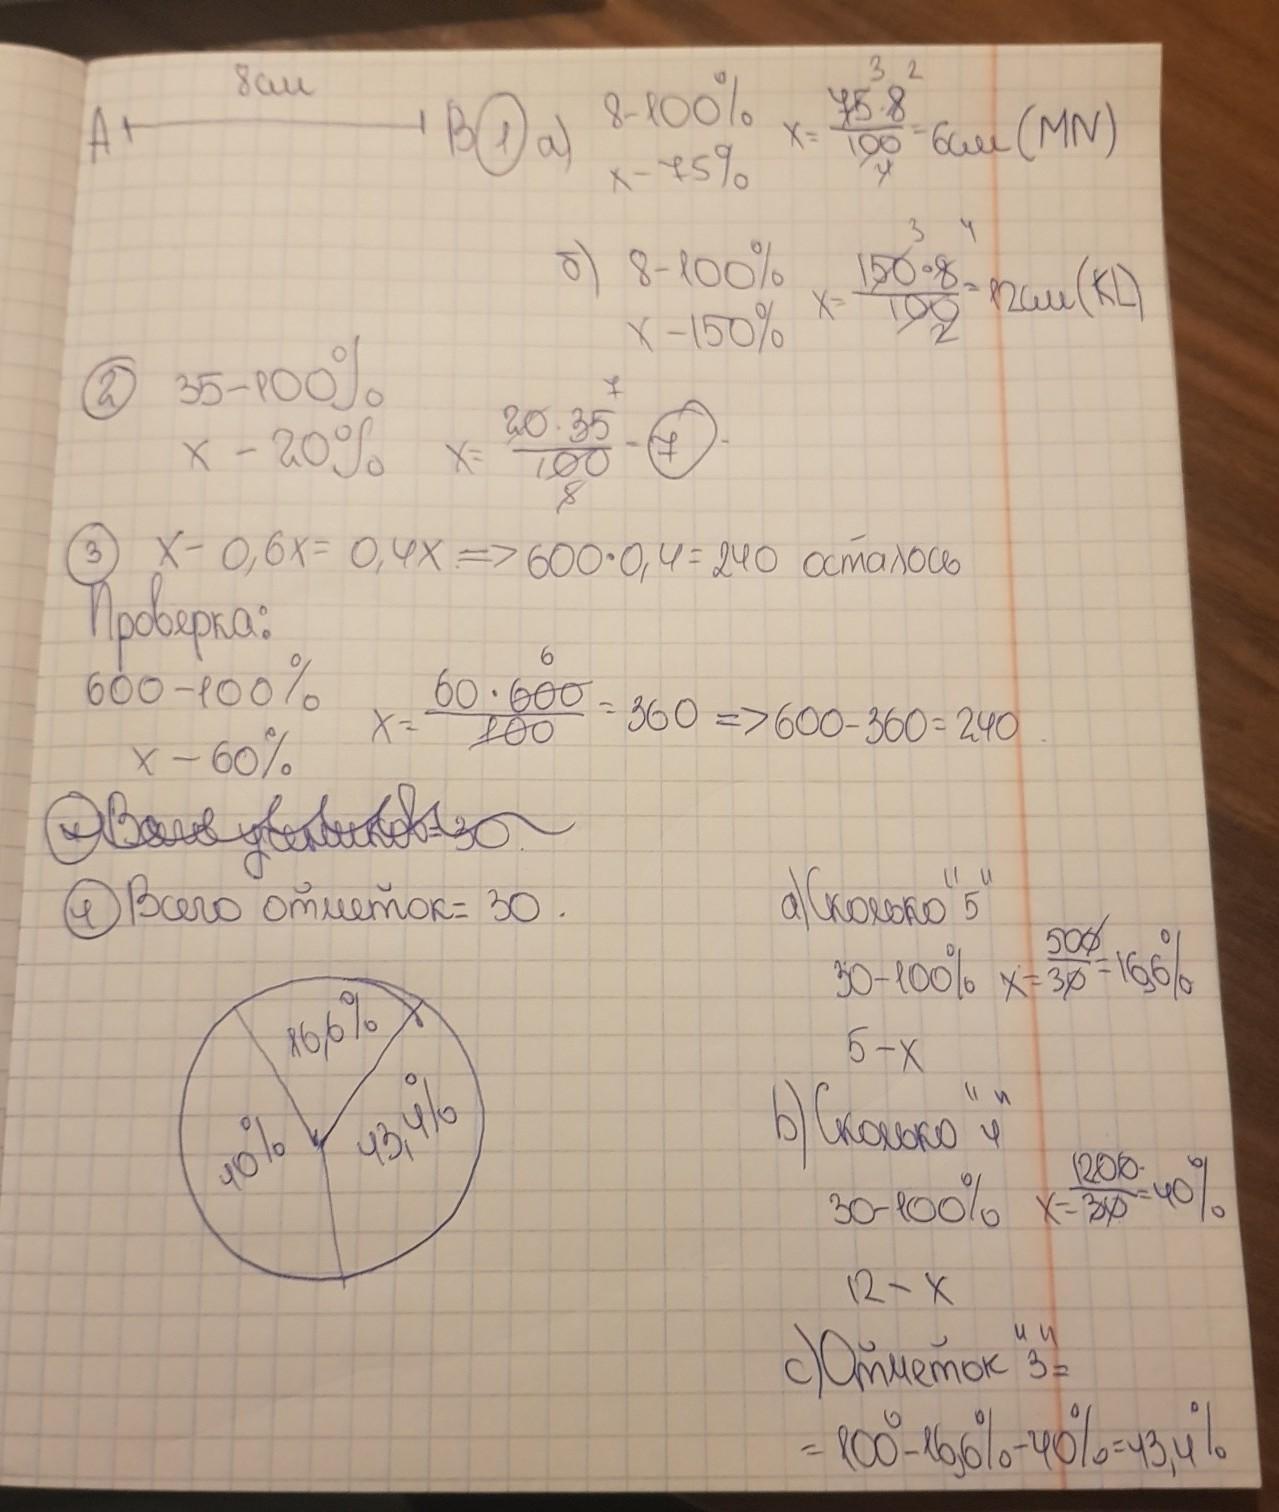 8см
A B ① а) 8-100% x = 75·8/100 = 6см (MN)
3 2
x - 75%
4
б) 8-100% x = 150·8/100 = 12см (KL)
3 4
x - 150%
2
② 35-100%
x - 20% x = 20·35/100 - 7
7
③ x - 0,6x = 0,4x => 600·0,4 = 240 осталось
Проверка:
600-100% x = 60·600/100 = 360 => 600-360=240
6
x - 60%
④ Всего отметок = 30.
а) Сколько "5"
30-100% x = 500/30 = 16,6%
5 - x
b) Сколько "4"
30-100% x = 1200/30 = 40%
12 - x
c) Отметок "3" =
= 100%-16,6%-40%=43,4%
16,6%
40%
43,4%